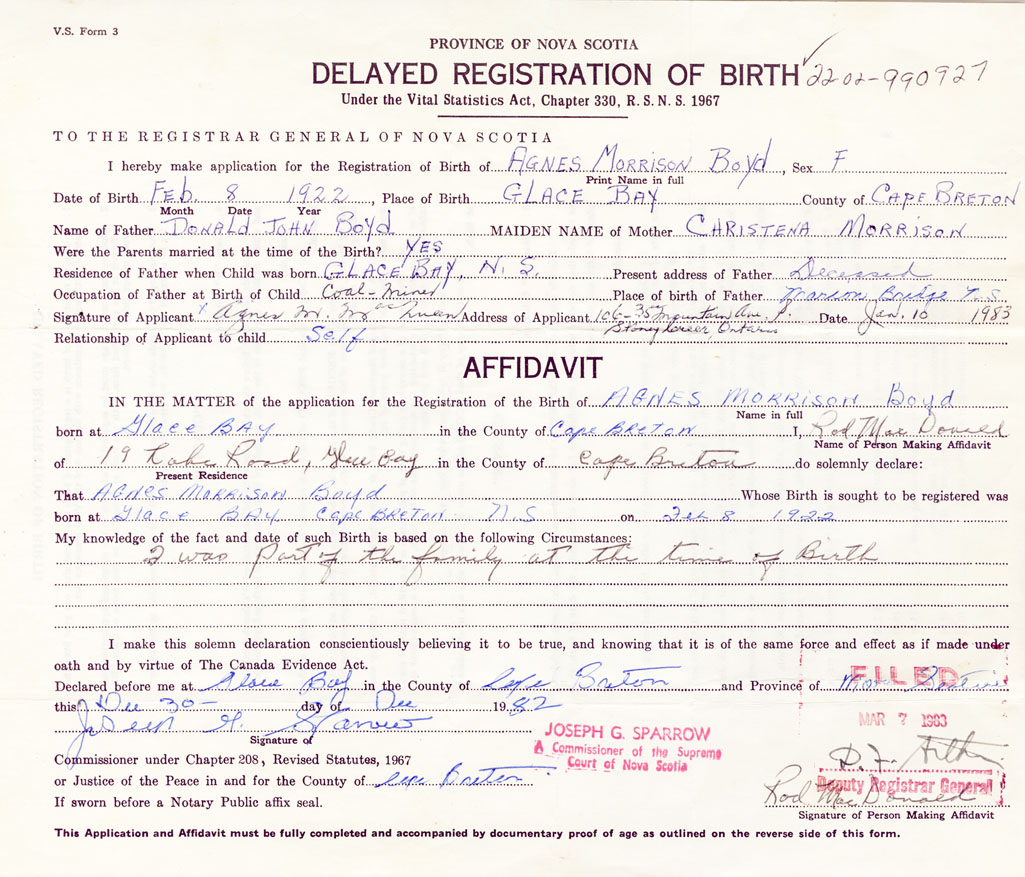 V.S. Form 3
PROVINCE OF NOVA SCOTIA
DELAYED REGISTRATION OF BIRTH 2202-990927
Under the Vital Statistics Act, Chapter 330, R.S.N.S. 1967
TO THE REGISTRAR GENERAL OF NOVA SCOTIA
I hereby make application for the Registration of Birth of AGNES MORRISON Boyd, Sex F
Print Name in full
Date of Birth Feb. 8 1922, Place of Birth GLACE BAY County of CAPE BRETON
Month Date Year
Name of Father DONALD JOHN BOYD MAIDEN NAME of Mother CHRISTENA MORRISON
Were the Parents married at the time of the Birth? YES
Residence of Father when Child was born GLACE BAY, N.S. Present address of Father Deceased
Occupation of Father at Birth of Child Coal-Miner Place of birth of Father Marion Bridge N.S
Signature of Applicant x Agnes M. Address of Applicant 106-35 Mountain Ave. Date Jan. 10 1983
Stoney Creek, Ontario
Relationship of Applicant to child Self
AFFIDAVIT
IN THE MATTER of the application for the Registration of the Birth of AGNES MORRISON Boyd
Name in full
born at Glace BAY in the County of Cape BRETON I, Rod MacDonald
Name of Person Making Affidavit
of 19 Lake Road, Glace Bay in the County of Cape Breton do solemnly declare:
Present Residence
That AGNES MORRISON Boyd Whose Birth is sought to be registered was
born at GLACE BAY CAPE BRETON N.S on Feb 8 1922
My knowledge of the fact and date of such Birth is based on the following Circumstances:
I was part of the family at the time of Birth
I make this solemn declaration conscientiously believing it to be true, and knowing that it is of the same force and effect as if made under
oath and by virtue of The Canada Evidence Act.
Declared before me at Glace Bay in the County of Cape Breton and Province of Nova Scotia
FILED
this Dec 30- day of Dec 1982
MAR 7 1983
Joseph G. Sparrow
Signature of
JOSEPH G. SPARROW
A Commissioner of the Supreme
Court of Nova Scotia
Commissioner under Chapter 208, Revised Statutes, 1967
or Justice of the Peace in and for the County of Cape Breton
Deputy Registrar General
If sworn before a Notary Public affix seal.
Rod MacDonald
Signature of Person Making Affidavit
This Application and Affidavit must be fully completed and accompanied by documentary proof of age as outlined on the reverse side of this form.